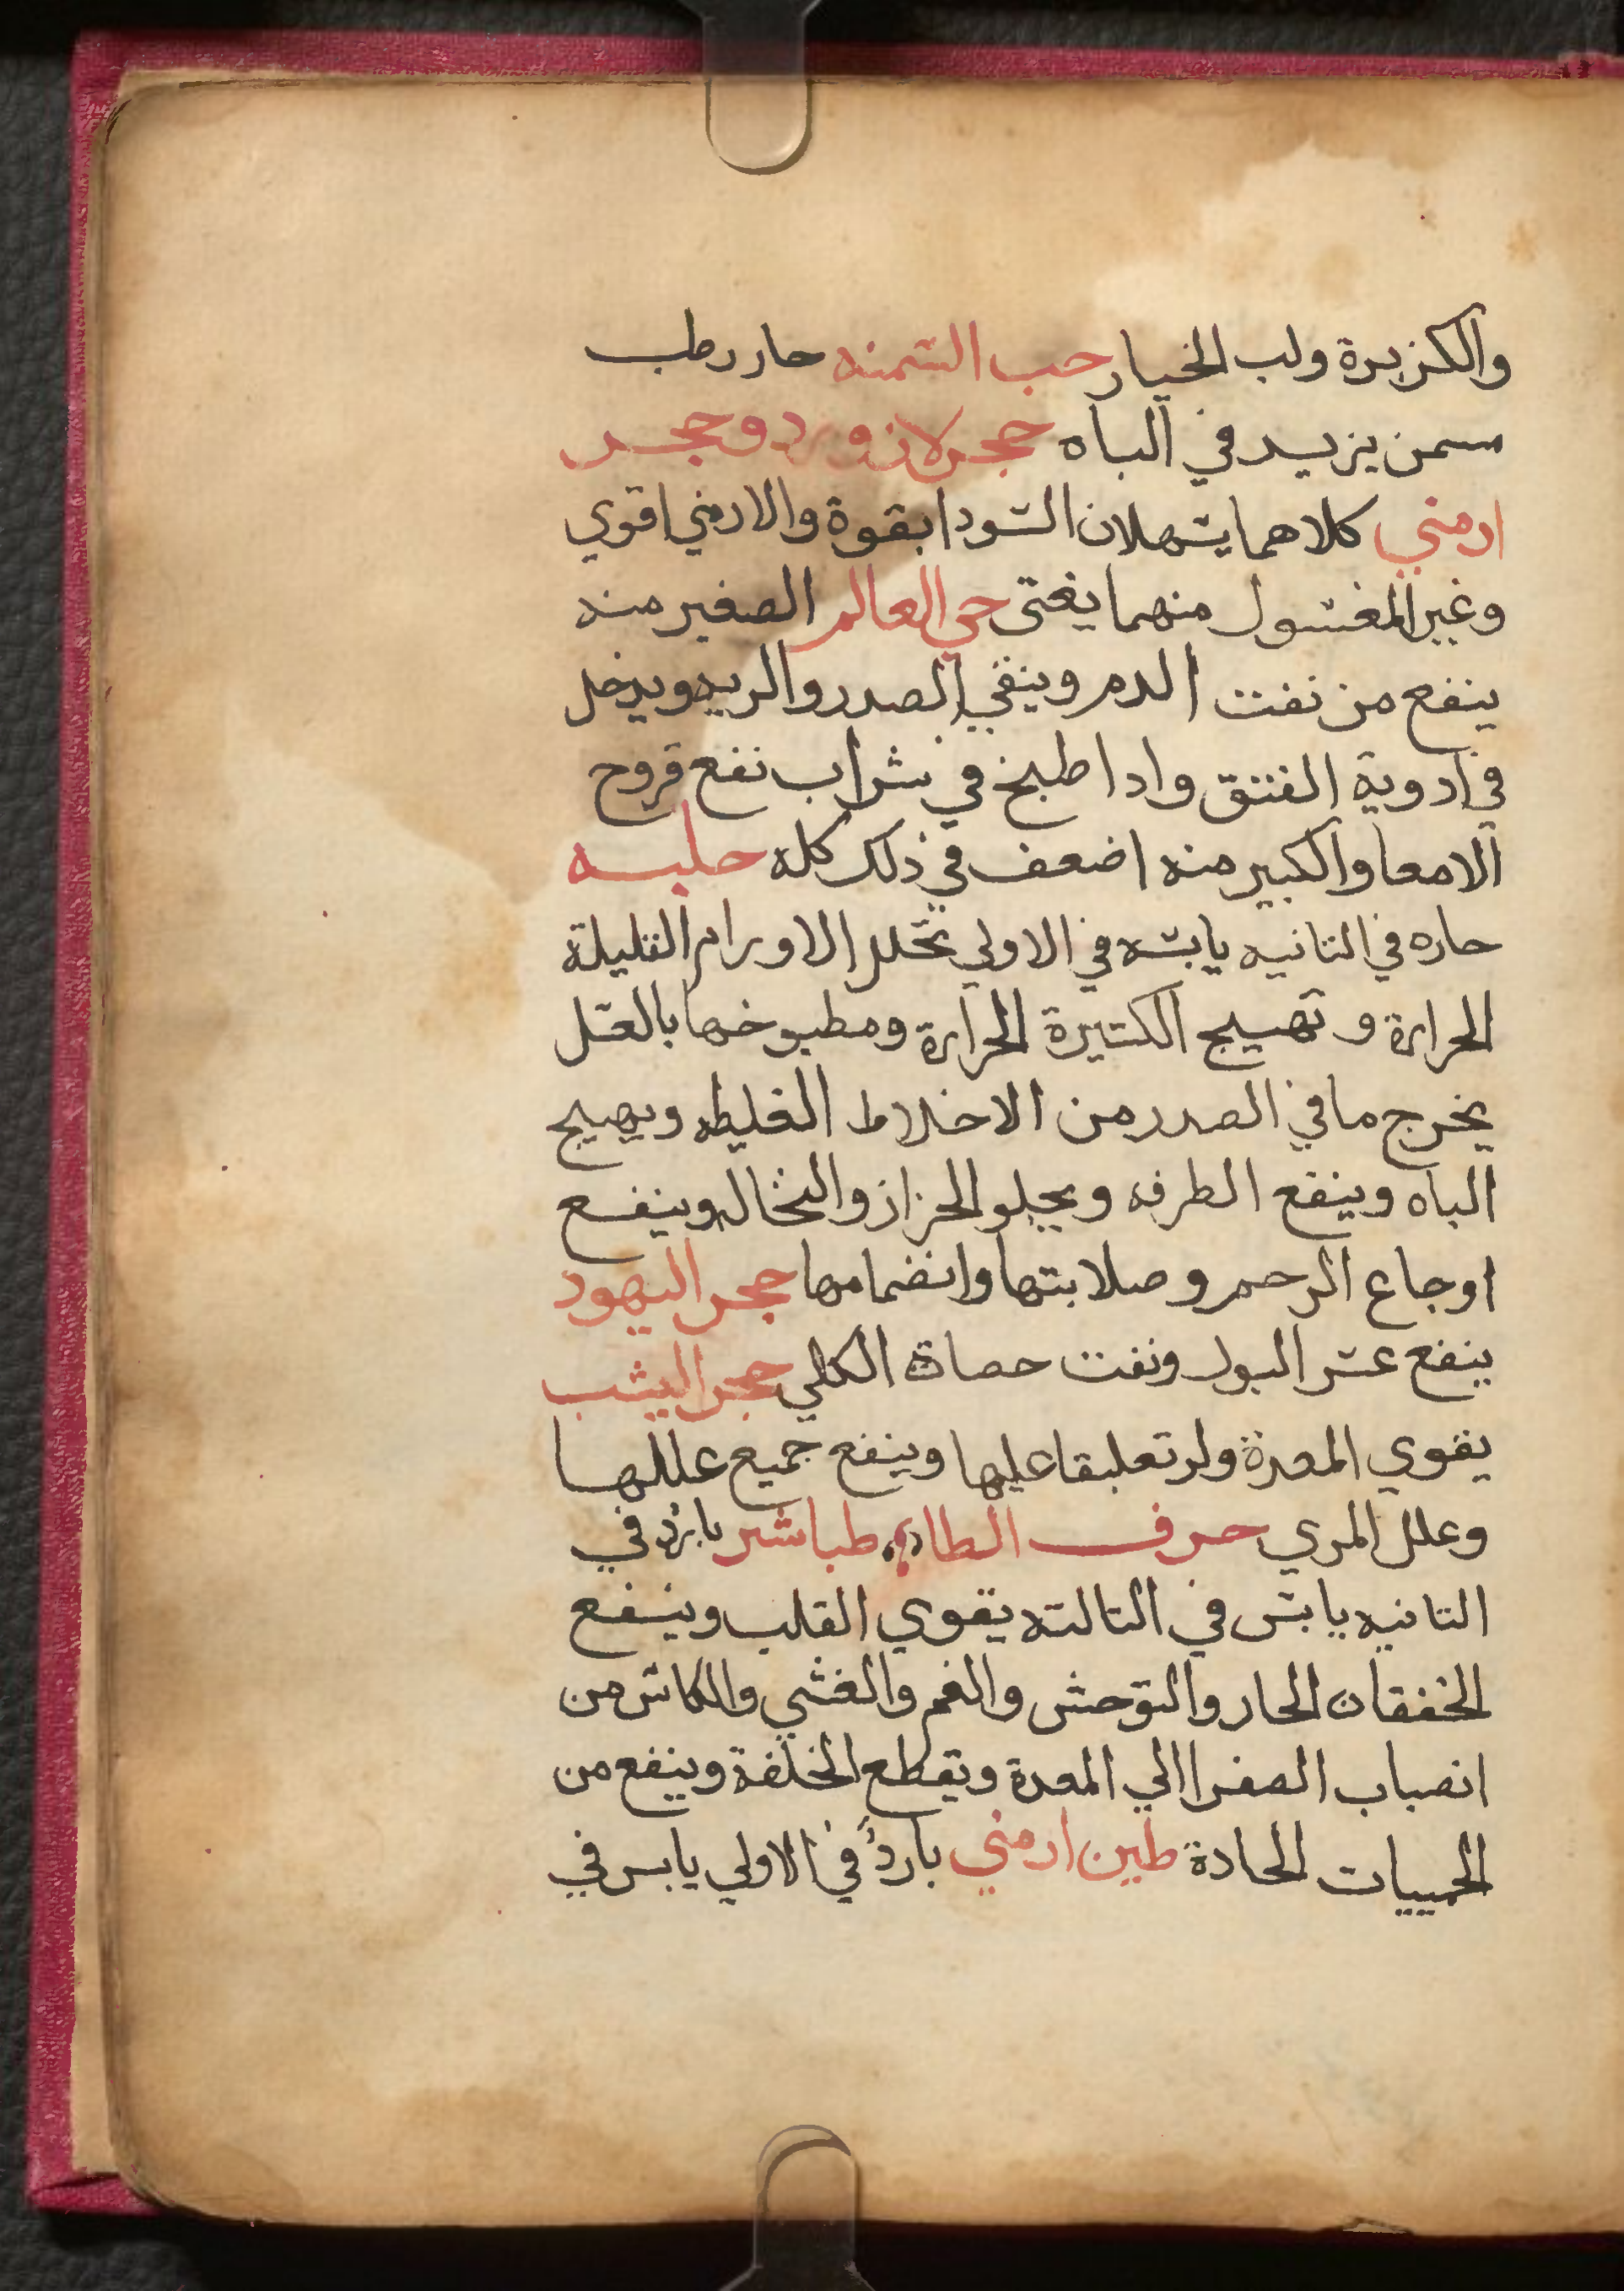 والكزبرة ولب الخيار حب السمنه حار رطب
سمن يزيد في الباه حجر لازورد وحجر
ارمني كلاهما يسهلان السودا بقوة والارمني اقوي
وغير المغسول منهما يغتي حي العالم الصغير منه
ينفع من نفت الدم وينقي الصدر والريه ويدخل
في ادوية الفتق وادا طبخ في شراب نفع قروح
الامعا والكبير منه اضعف في ذلك كله حلبه
حاره في التانيه يابسه في الاولي تحلل الاورام القليلة
الحرارة وتهيج الكتيرة الحرارة ومطبوخها بالعسل
يخرج ما في الصدر من الاخلاط الغليظه ويهيج
الباه وينفع الطرفه ويجلو الحزاز والنخاله وينفع
اوجاع الرحم وصلابتها وانضمامها حجر اليهود
ينفع عسر البول ونفت حصاة الكلي حجر اليشب
يقوي المعدة ولو تعليقا عليها وينفع جميع عللها
وعلل المري حرف الطاء طباشر بارد في
التانيه يابس في التالته يقوي القلب وينفع
الخفقان الحار والتوحش والغم والغشي والكائن من
انصباب الصفرا الي المعدة ويقطع الخلفة وينفع من
الحمييات الحادة طين ارمني بارد في الاولي يابس في